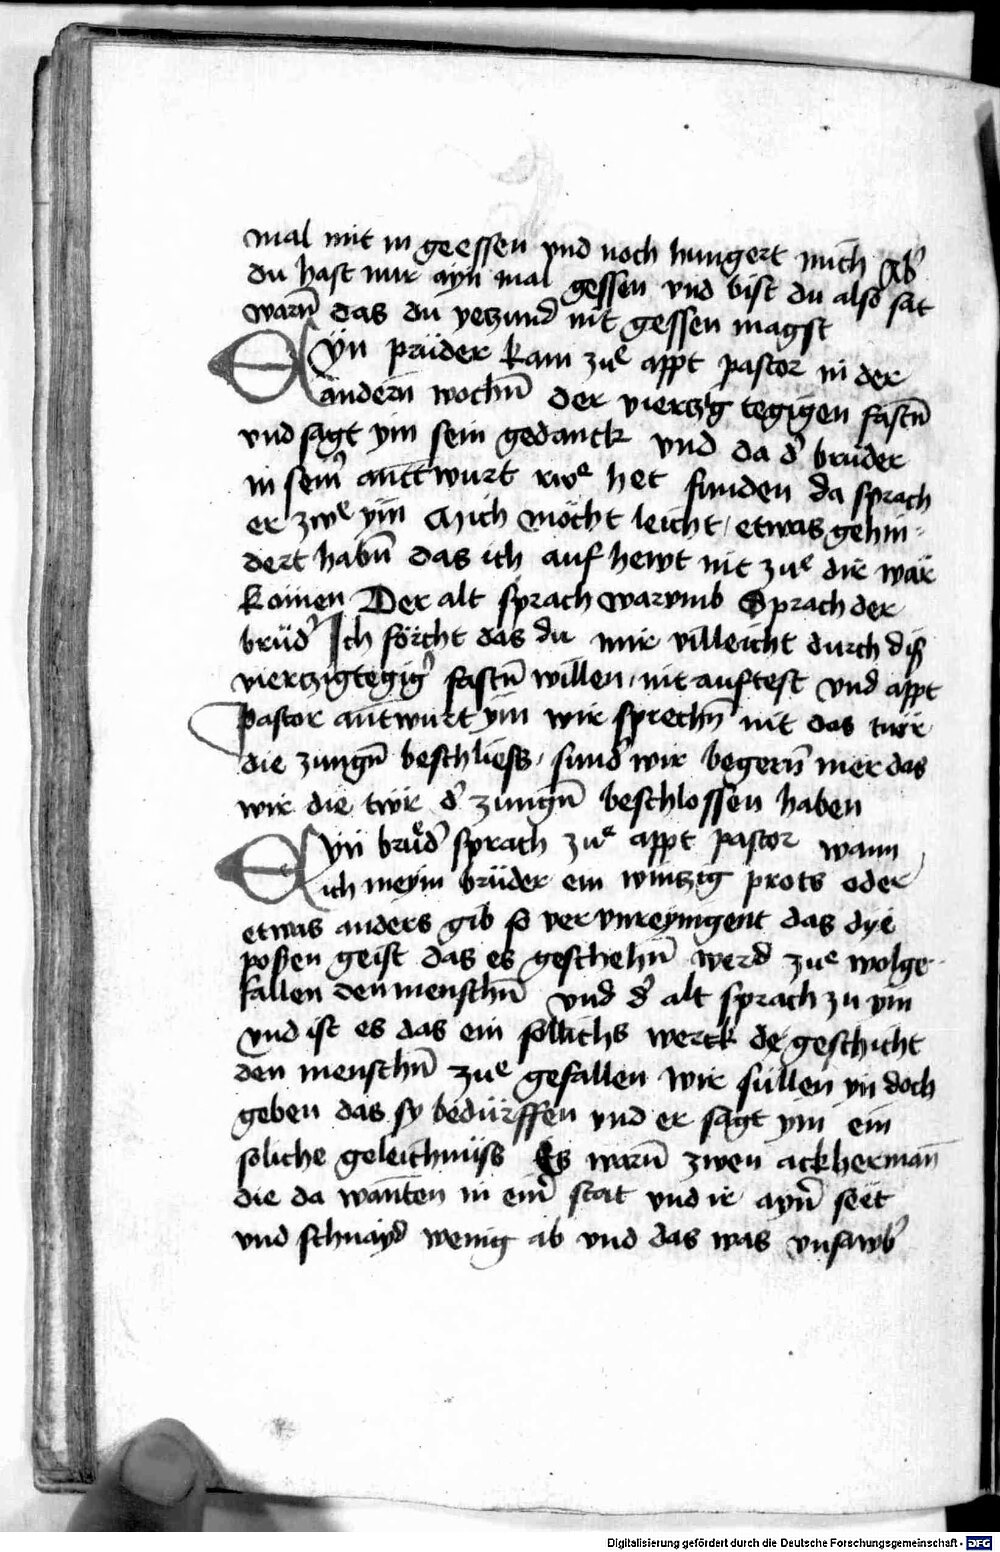 mal mit in geessen vnd noch hungert mich Ab͛
du hast nur ayn mal gessen vnd bist du also sat
warn̄ das du yeczund nit gessen magst
Eÿn prüder kam zuͤ appt pastor in der
andern wochn̄ der vierczg tegigen fastn̄
vnd sagt ym sein gedanck vnd da d͛ brüder
in sein͛ anttwurt rwͤ het funden da sprach
er zwͤ ym Mich möcht leicht etwas gehin=
dert habn̄ das ich auf hewt nit zuͤ dir wär
komen Der alt sprach warvmb Sprach der
brüd͛ Ich förcht das du mir villeicht durch diß
vierczigtegig͛ fastn̄ willen nit auftest vnd appt
pastor antwurt ym wir sprechn̄ nit das twr
die zungn̄ beschliess sund͛ wir begern̄ mer das
wir die twr d͛ zungn̄ beschlossen haben
Eyn brüd͛ sprach zuͤ appt pastor wann
ich meym brüder ein winczig prots oder
etwas anders gib so vervnreynigent das dye
posen geist das es geschehn̄ werd zuͤ wolge
fallen den menschn̄ vnd d͛ alt sprach zu ym
vnd ist es das ein sollichs werck geschicht
den menschn̄ zuͤ gefallen wir süllen yn doch
geben das sy bedürffen vnd er sagt ym ein
soliche geleichnüss Es warn̄ zwen ackherman̄
die da wanten in ein͛ stat vnd ir ayn͛ seet
vnd schnayd wenig ab vnd das was vnsawb͛
Digitalisierung gefördert durch die Deutsche Forschungsgemeinschaft - DFG